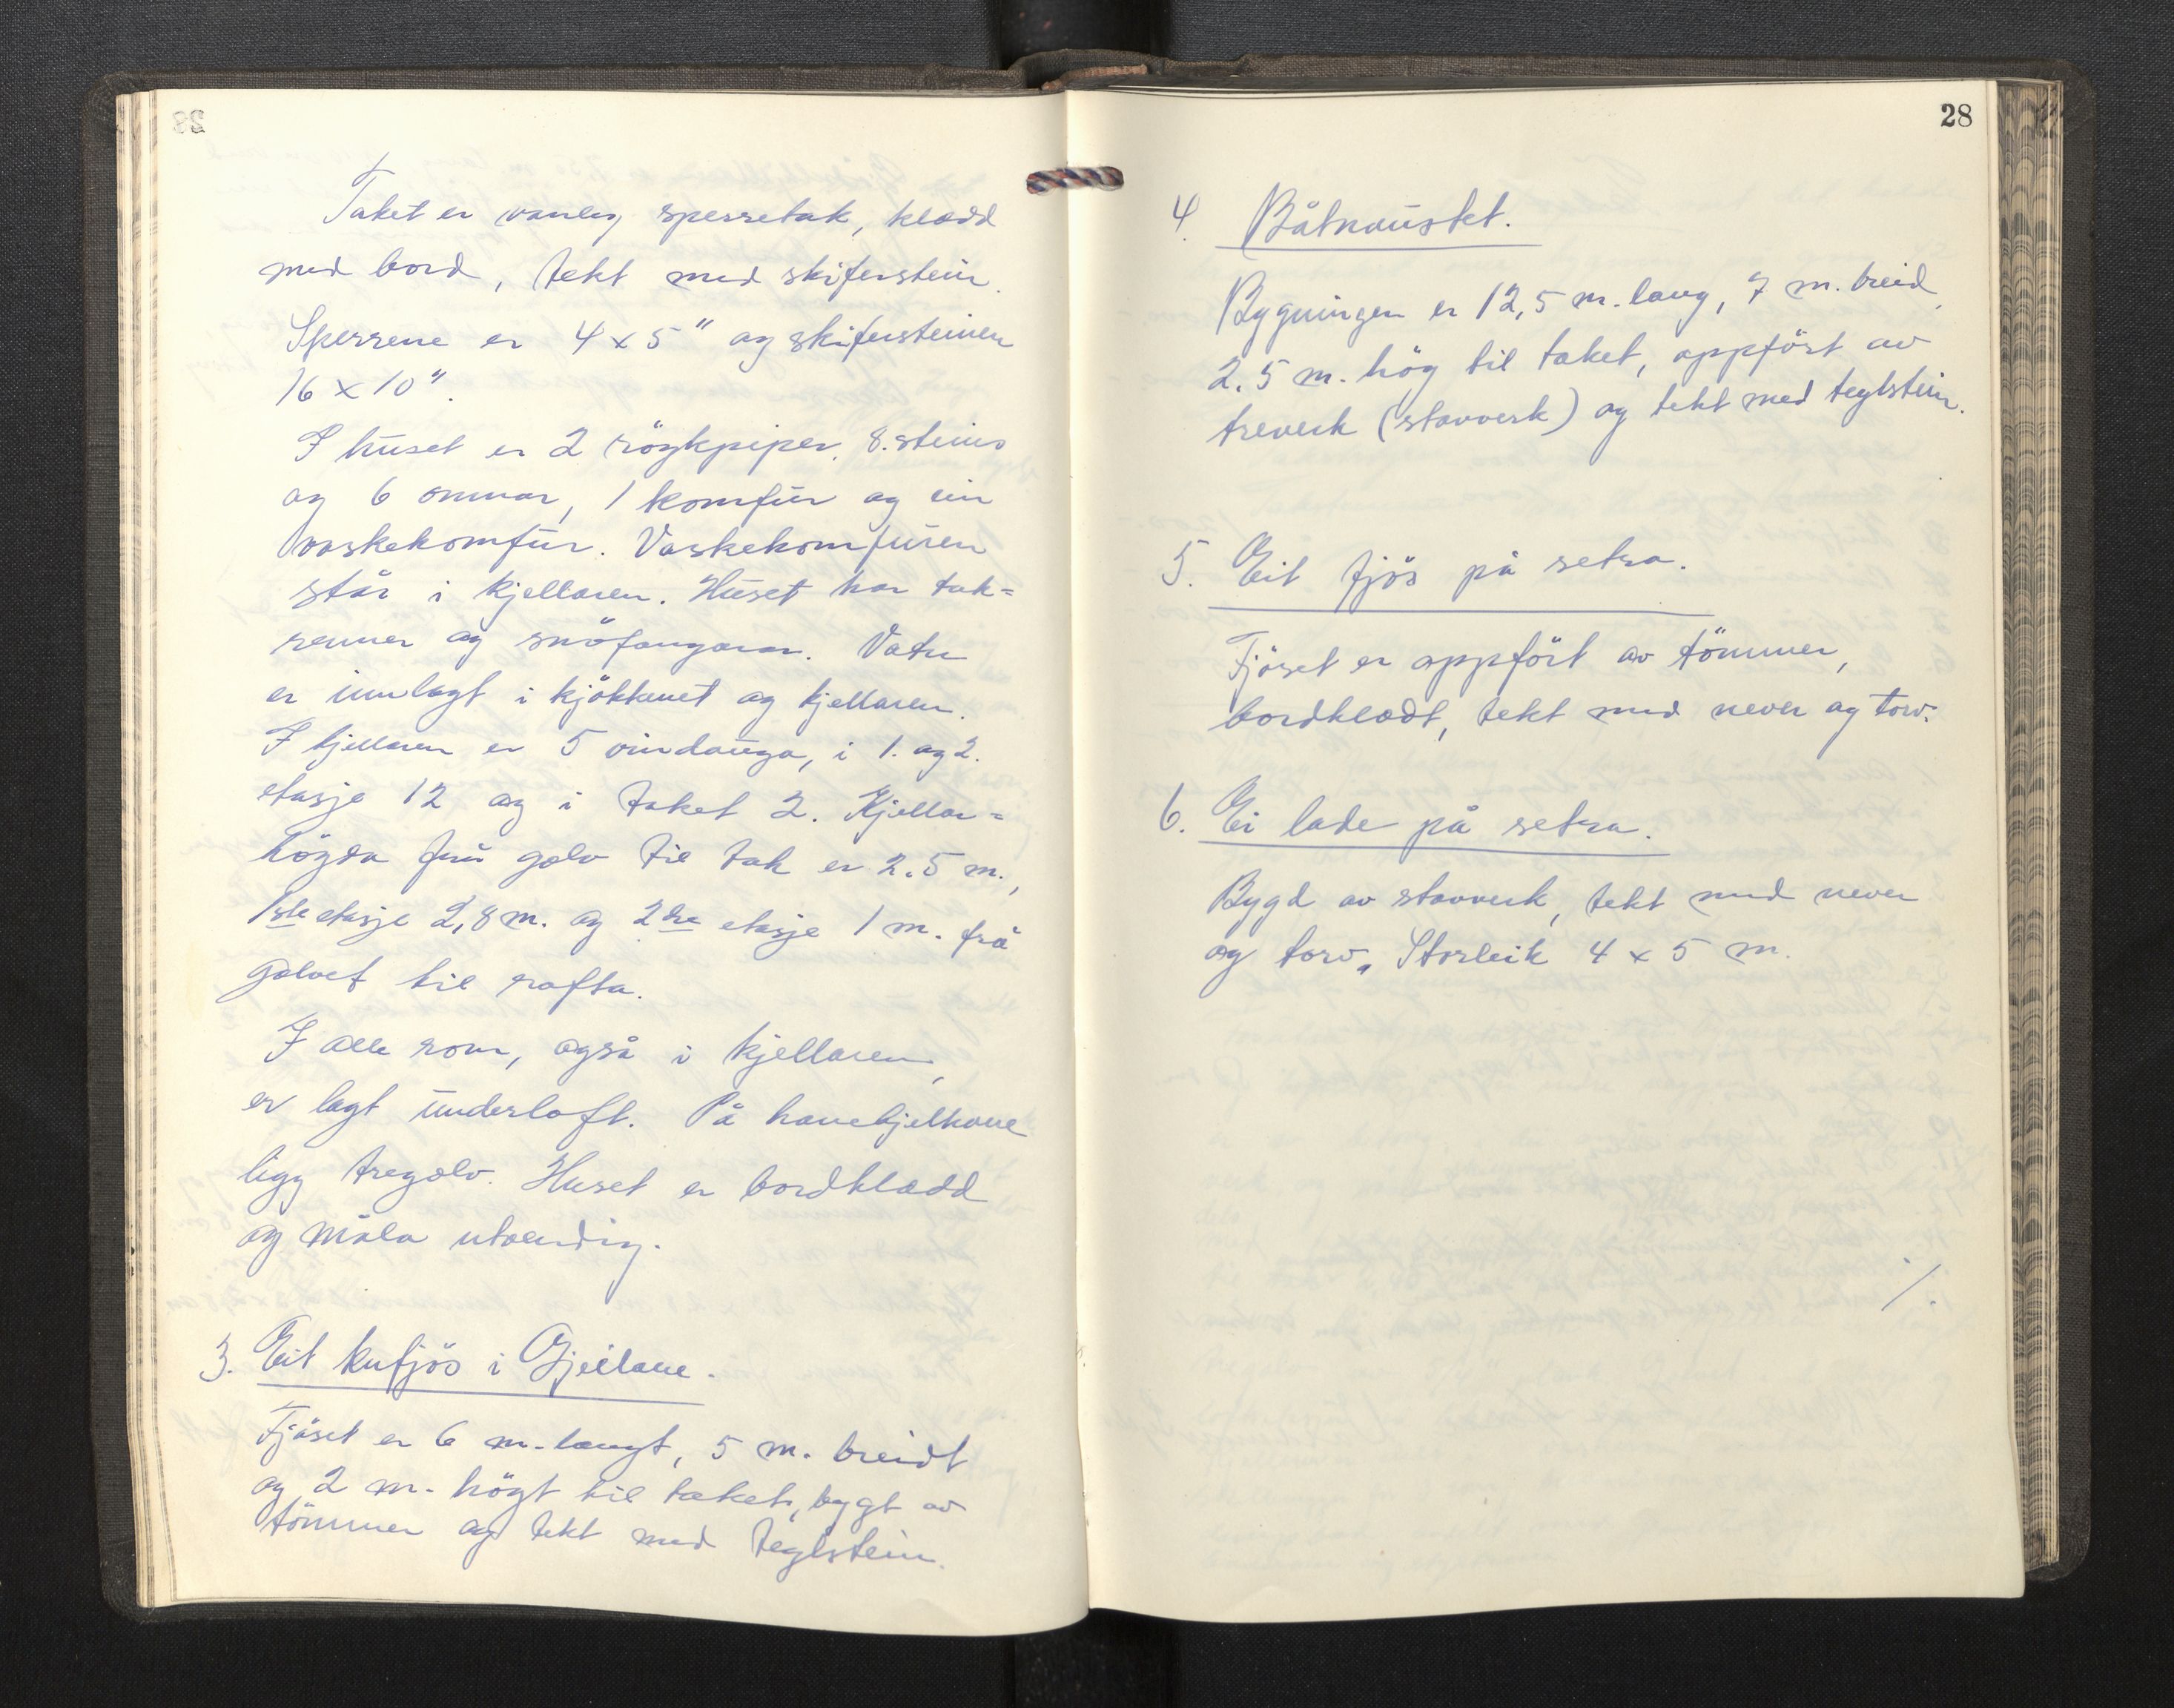 Taket er vanleg sperretak, klædd
med bord, tekt med skiferstein.
Sperrene er 4 x 5" og skifersteinen
16 x 10".
I huset er 2 röykpiper, 8. steins
og 6 omnar, 1 komfur og ein
vaskekomfur. Vaskekomfuren
står i kjellaren. Huset har tak=
renner og snöfangarar. Vatn
er innlagt i kjökkenet og kjellaren.
I kjellaren er 5 vindauga, i 1. og 2.
etasje 12 og i taket 2. Kjellar=
högda frå golv til tak er 2.5 m.,
1ste etasje 2,8 m. og 2dre etasje 1 m. frå
golvet til rafta.
I alle rom, også i kjellaren,
er lagt underloft. På hanebjelkane
ligg tregolv. Huset er bordklædd
og måla utvendig.
3. Eit kufjös i Gjeilane.
Fjöset er 6 m. langt, 5 m. breidt
og 2 m. högt til taket, bygt av
tömmer og tekt med teglstein.
28
4. Båtnaustet.
Bygningen er 12,5 m. lang, 7 m. breid,
2.5 m. hög til taket, oppfört av
treverk (stavverk) og tekt med teglstein.
5. Eit fjös på setra.
Fjöset er oppfört av tömmer,
bordklædt, tekt med never og torv.
6. Ei lade på setra.
Bygd av stavverk, tekt med never
og torv. Storleik 4 x 5 m.